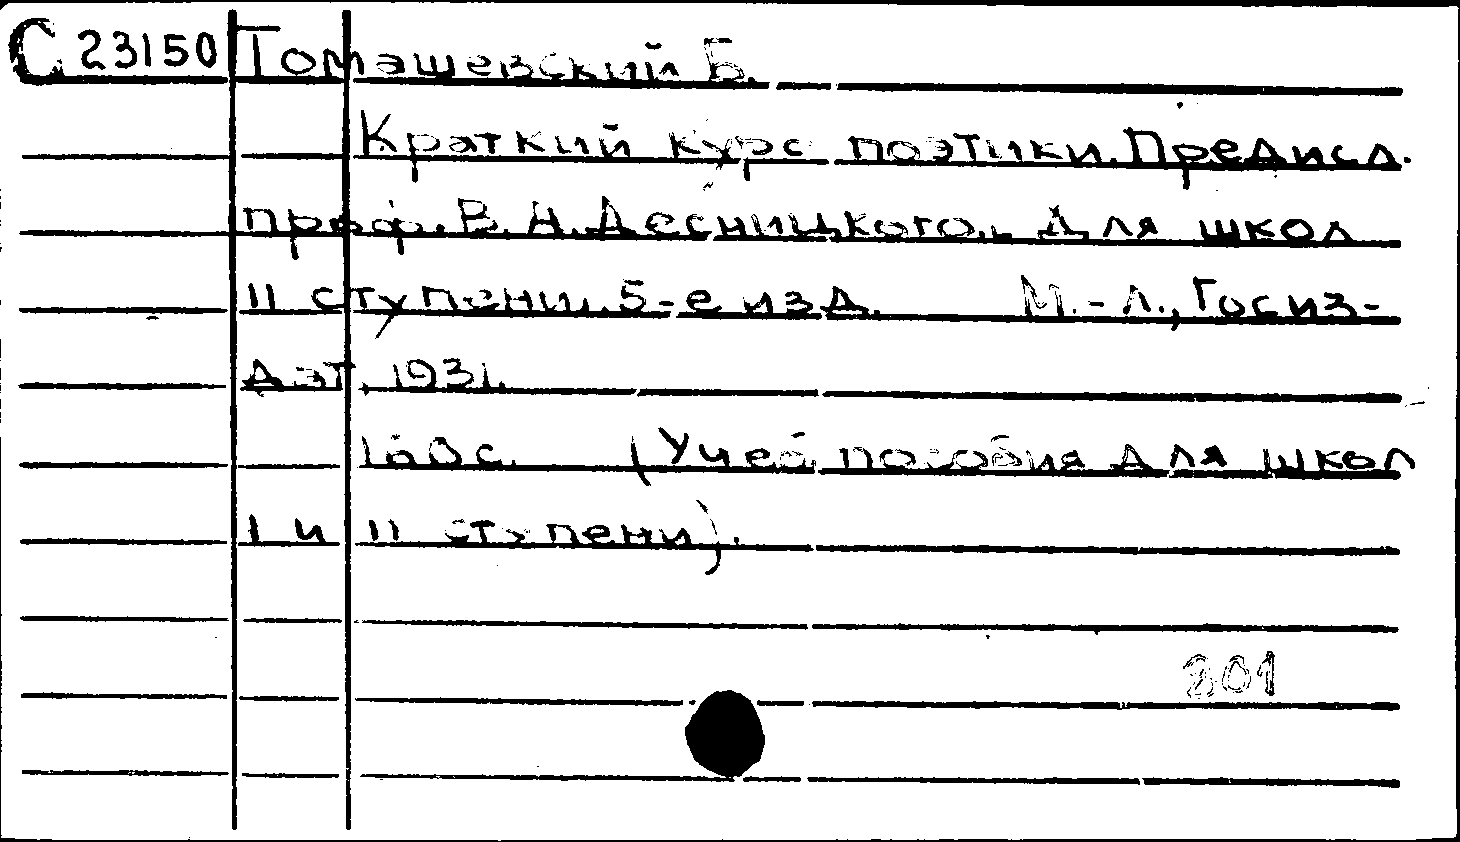 С 23150 Томашевский Б.
Краткий курс поэтики. Предисл.
проф. В. А. Десницкого. Для школ
II ступени. 5-е изд. М.-Л., Госиз-
дат, 1931.
160 с. (Учеб. пособия для школ
I и II ступени).
201